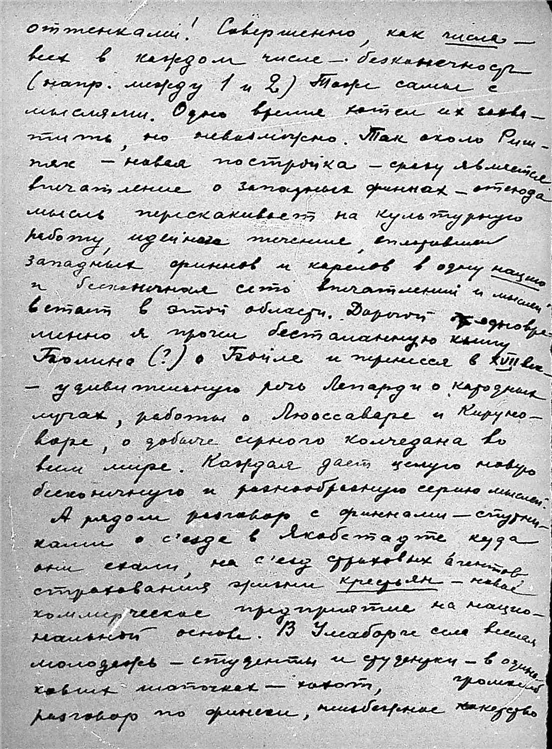 оттенками! Совершенно, как числа –
всех в каждом числе – бесконечность
(напр. между 1 и 2) Тоже самые с
мыслями. Одно время хотел их захва-
тить, но невозможно. Так около Рих-
няк – новая постройка – сразу является
впечатление о западных финнах – отсюда
мысль перескакивает на культурную
работу, идейное течение,
западных финнов и карелов в одну нацию
и бесконечная сеть впечатлений и мыслей
встает в этой области. Дорогой одновре-
менно я прочел бесталанную книгу
(?) о Бойле и перенесся в XVII век
– удивительную речь о народных
лугах, работы о Люоссаваре и Кируно-
варе, о добыче серного колчедана во
всем мире. Каждая дает целую новую
бесконечную и разнообразную серию мыслей.
А рядом разговор с финнами – спутни-
ками о с'езде в Якобстадте куда
они ехали, на с'езд страховых агентов
страхования жизни крестьян – новое
коммерческое предприятие на нацио-
нальной основе. В сели веселая
молодежь – студенты и студентки – в одина-
ковых шапочках – хохот, громкий
разговор по фински, неизбежное кокетство